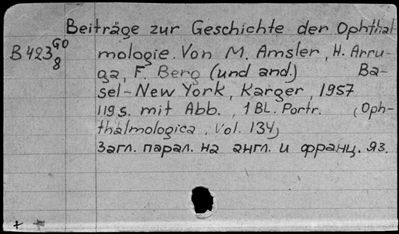 Beiträge zur Geschichte der Ophthal-
mologie. Von M. Amsler, H. Arru-
ga, F. Berg (und and.) Ba-
sel-New York, Karger, 1957
119 s. mit Abb., 1 BL. Portr. (Oph-
thalmologica. Vol. 134)
Загл. парал. на англ. и франц. яз.
B 423 60
8